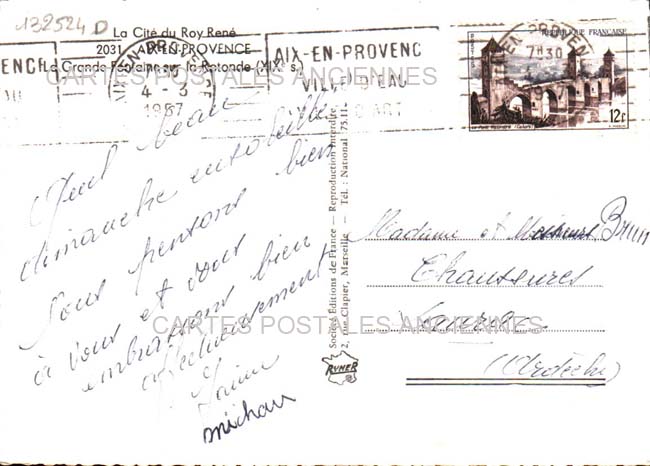 132524 D
La Cité du Roy René
2031 AIX-EN-PROVENCE
La Grande Fontaine sur la Rotonde (XIXe s.)
ENCE
AIX-EN-PROVENCE
4 - 3
1957
AIX-EN-PROVENC
VILLE D'EAU
D'ART
AIX-EN-PROVEN
7H30
REPUBLIQUE FRANÇAISE
POSTES
Le Pont Valentré (Cahors)
12F
CARTES POSTALES ANCIENNES
Quel beau
dimanche ensoleillé
Nous pensons bien
à vous et vous
embrassons bien
affectueusement
michau
Société Editions de France — Reproduction Interdite
2, rue Clapier, Marseille — Tél. : National 75.11
RYNER
Madame et Messieurs Brun
Chaussures
(Ardèche)
CARTES POSTALES ANCIENNES